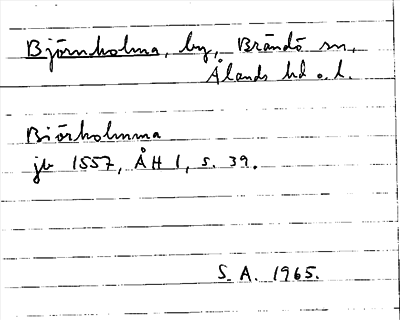 Björnholma, by, Brändö sn,
Ålands hd o. l.
Biörholmma
jb 1557, ÅH 1, s. 39.
S. A. 1965.